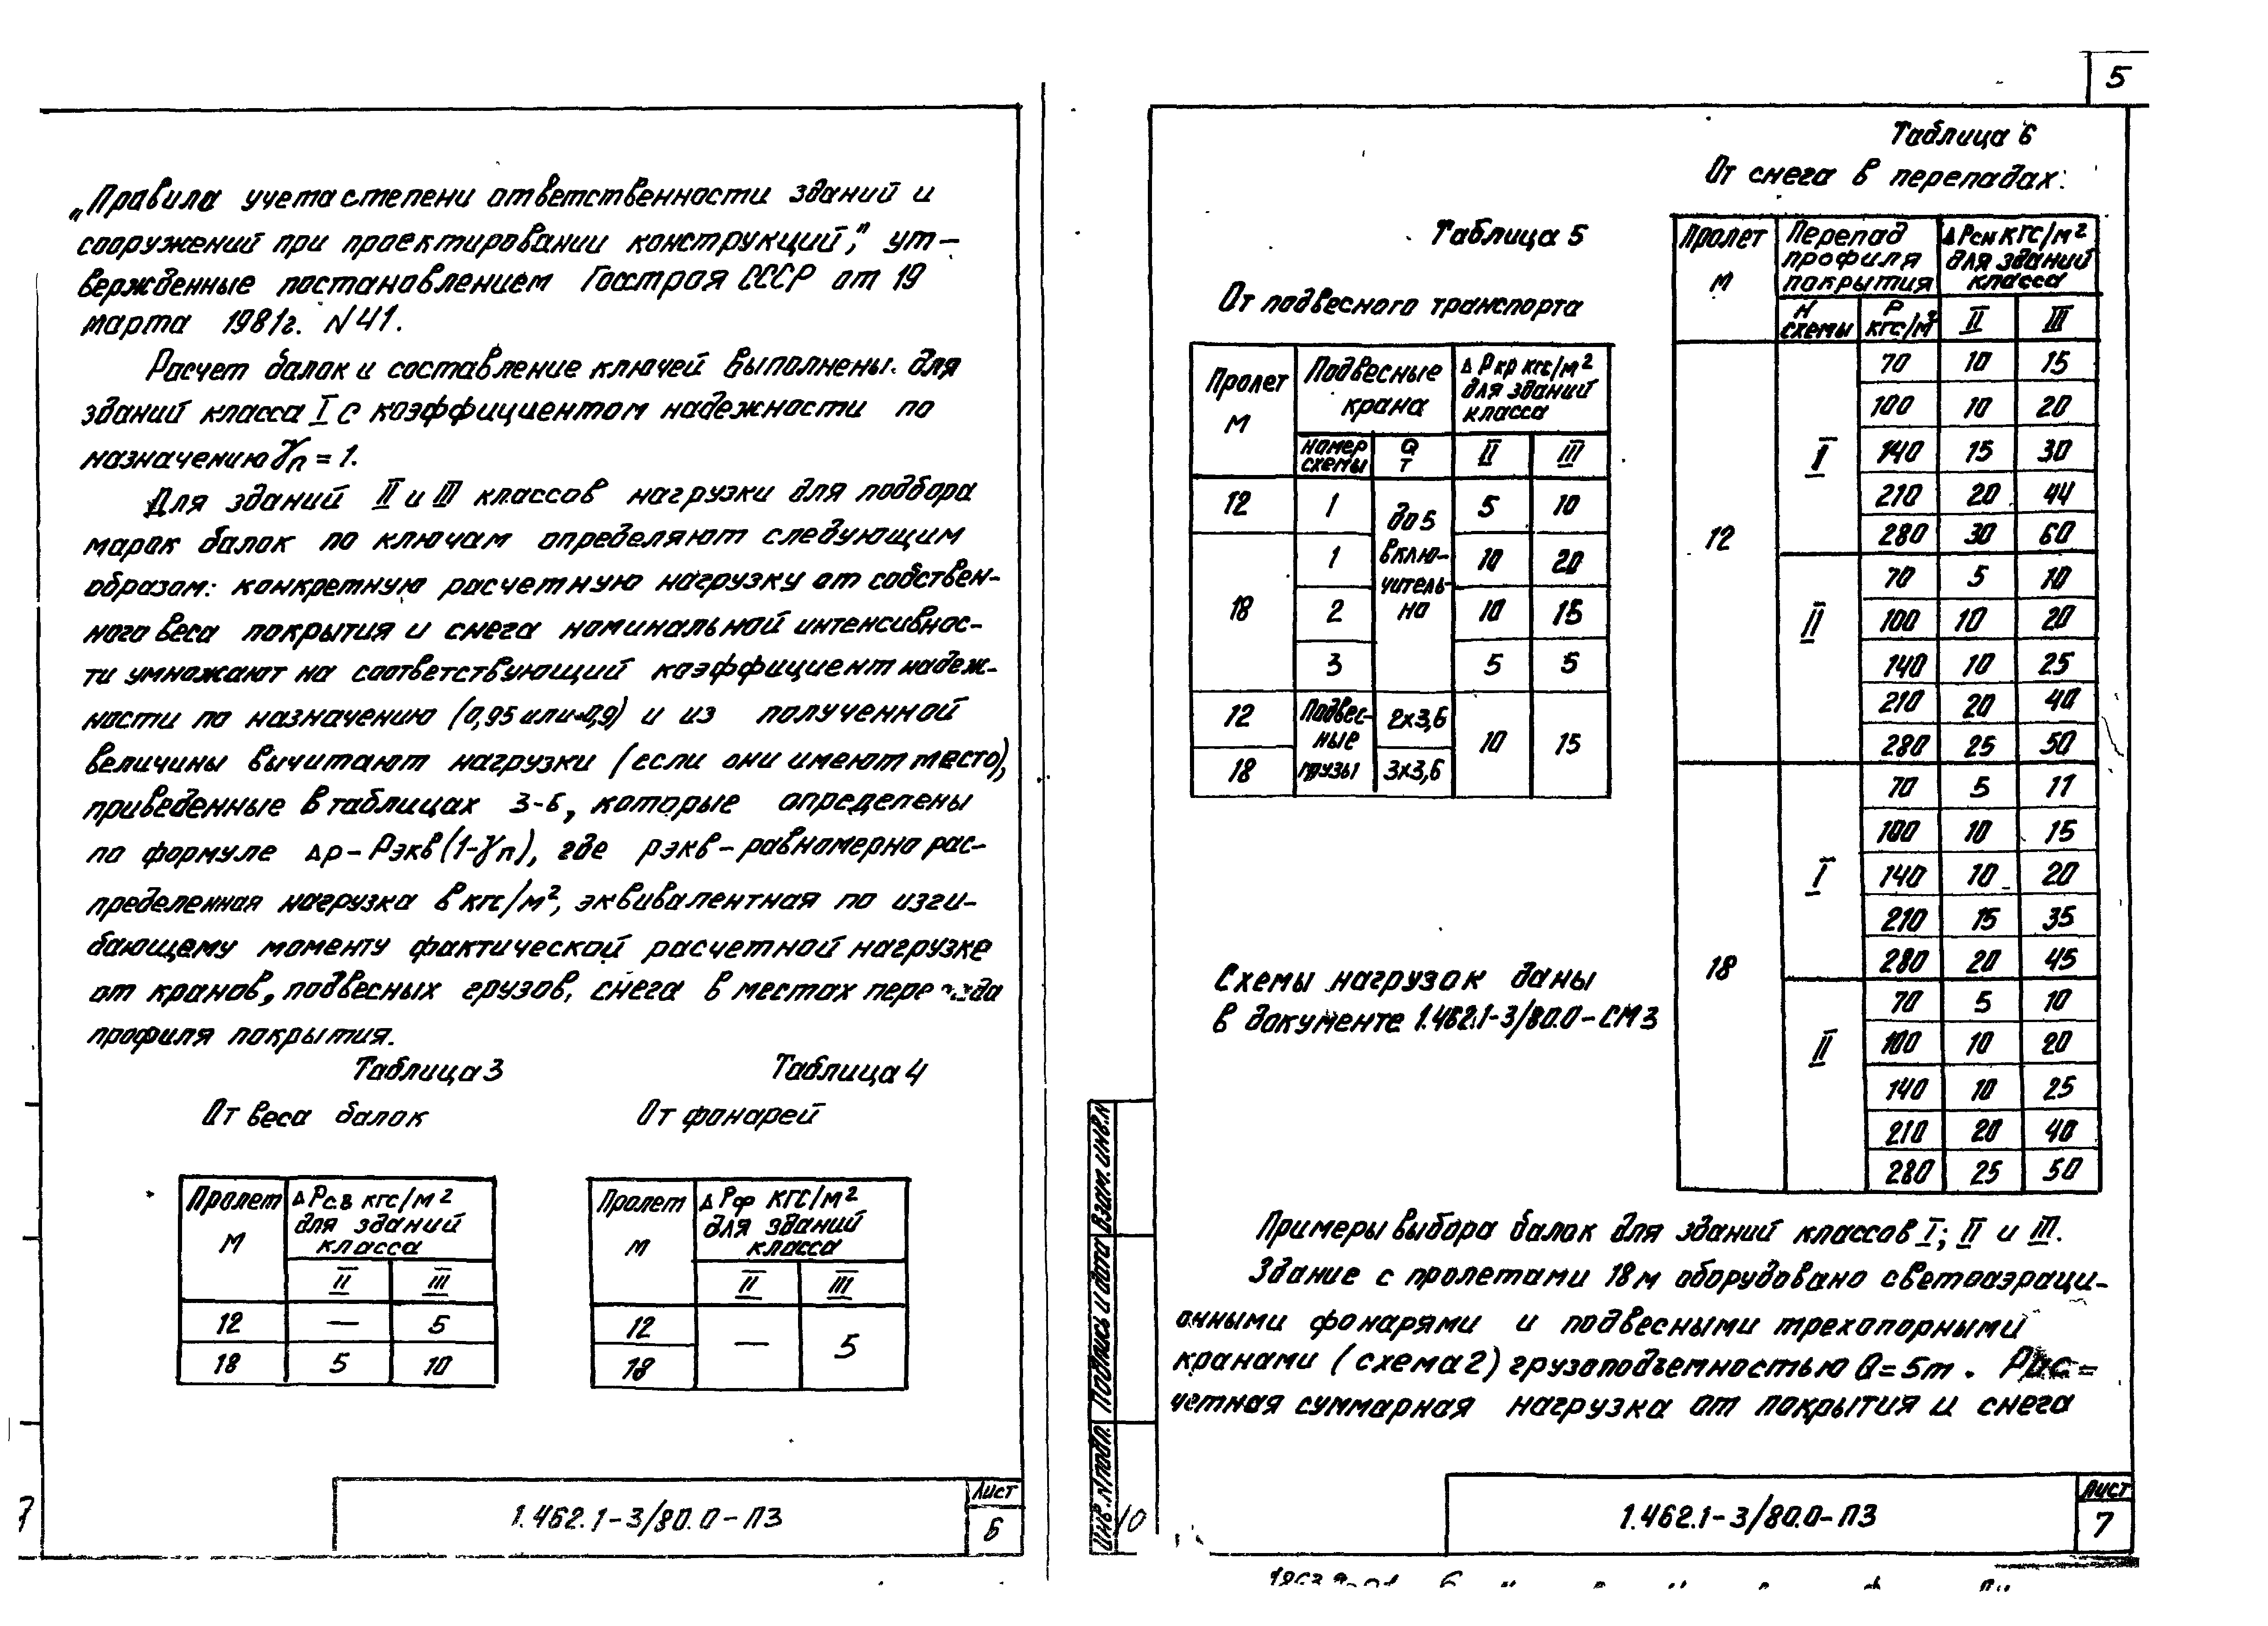 „Правила учета степени ответственности зданий и
сооружений при проектировании конструкций“, ут-
вержденные постановлением Госстроя СССР от 19
марта 1981г. N41.
Расчет балок и составление ключей выполнены для
зданий класса I с коэффициентом надежности по
назначению γп = 1.
Для зданий II и III классов нагрузки для подбора
марок балок по ключам определяют следующим
образом: конкретную расчетную нагрузку от собствен-
ного веса покрытия и снега номинальной интенсивнос-
ти умножают на соответствующий коэффициент надеж-
ности по назначению (0,95 или 0,9) и из полученной
величины вычитают нагрузки (если они имеют место),
приведенные в таблицах 3-6, которые определены
по формуле Δр-Рэкв(1-γп), где рэкв-равномерно рас-
пределенная нагрузка в кгс/м², эквивалентная по изги-
бающему моменту фактической расчетной нагрузке
от кранов, подвесных грузов, снега в местах перепада
профиля покрытия.
Таблица 3
От веса балок
Пролет м | ΔРс.в кгс/м² для зданий класса
II | III
12 | — | 5
18 | 5 | 10
Таблица 4
От фонарей
Пролет м | ΔРф кгс/м² для зданий класса
II | III
12 | — | 5
18
1.462.1-3/80.0-ПЗ
Лист
6
7
5
Таблица 5
От подвесного транспорта
Пролет м | Подвесные крана | ΔРкр кгс/м² для зданий класса
номер схемы | Q т | II | III
12 | 1 | до 5 включительно | 5 | 10
18 | 1 | 10 | 20
2 | 10 | 15
3 | 5 | 5
12 | Подвесные грузы | 2х3,6 | 10 | 15
18 | 3х3,6
Схемы нагрузок даны
в документе 1.462.1-3/80.0-СМ3
Таблица 6
От снега в перепадах:
Пролет м | Перепад профиля покрытия | ΔРсн кгс/м² для зданий класса
N схемы | Р кгс/м² | II | III
12 | I | 70 | 10 | 15
100 | 10 | 20
140 | 15 | 30
210 | 20 | 44
280 | 30 | 60
II | 70 | 5 | 10
100 | 10 | 20
140 | 10 | 25
210 | 20 | 40
280 | 25 | 50
18 | I | 70 | 5 | 11
100 | 10 | 15
140 | 10 | 20
210 | 15 | 35
280 | 20 | 45
II | 70 | 5 | 10
100 | 10 | 20
140 | 10 | 25
210 | 20 | 40
280 | 25 | 50
Примеры выбора балок для зданий классов I; II и III.
Здание с пролетами 18м оборудовано светоаэраци-
онными фонарями и подвесными трехопорными
кранами (схема 2) грузоподъемностью Q=5т. Рас=
четная суммарная нагрузка от покрытия и снега
Инв. N подл. Подпись и дата Взам. инв. N
10
1.462.1-3/80.0-ПЗ
Лист
7